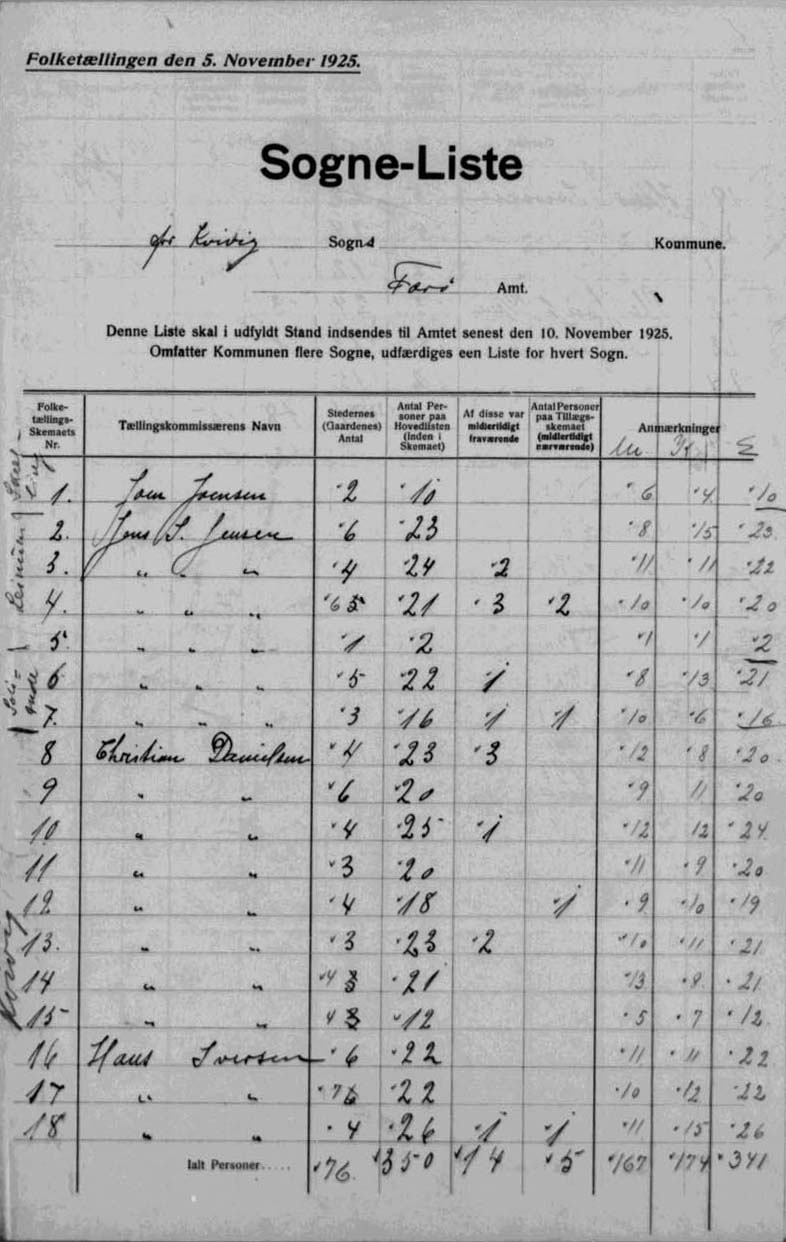 Folketællingen den 5. November 1925.
Sogne-Liste
for Kvivig Sogn Kommune.
Færø Amt.
Denne Liste skal i udfyldt Stand indsendes til Amtet senest den 10. November 1925.
Omfatter Kommunen flere Sogne, udfærdiges een Liste for hvert Sogn.
Folketællings-Skemaets Nr. Tællingskommissærens Navn Stedernes (Gaardenes) Antal Antal Personer paa Hovedlisten (inden i Skemaet) Af disse var midlertidigt fraværende Antal Personer paa Tillægsskemaet (midlertidigt nærværende) Anmærkninger
M K Σ
1. Joen Joensen 2 10 6 4 10
2. Jens S. Jensen 6 23 8 15 23
3. " " " 4 24 2 11 11 22
4. " " " 6 5 21 3 2 10 10 20
5. " " " 1 2 1 1 2
6 " " " 5 22 1 8 13 21
7. " " " 3 16 1 1 10 6 16
8 Christian Danielsen 4 23 3 12 8 20
9 " " 6 20 9 11 20
10 " " 4 25 1 12 12 24
11 " " 3 20 11 9 20
12 " " 4 18 1 9 10 19
13. " " 3 23 2 10 11 21
14 " " 4 3 21 13 8 21
15 " " 4 3 12 5 7 12
16 Hans Iversen 6 22 11 11 22
17 " " 7 6 22 10 12 22
18 " " 4 26 1 1 11 15 26
Ialt Personer..... 76 350 14 5 167 174 341
Leinum
Kvivig